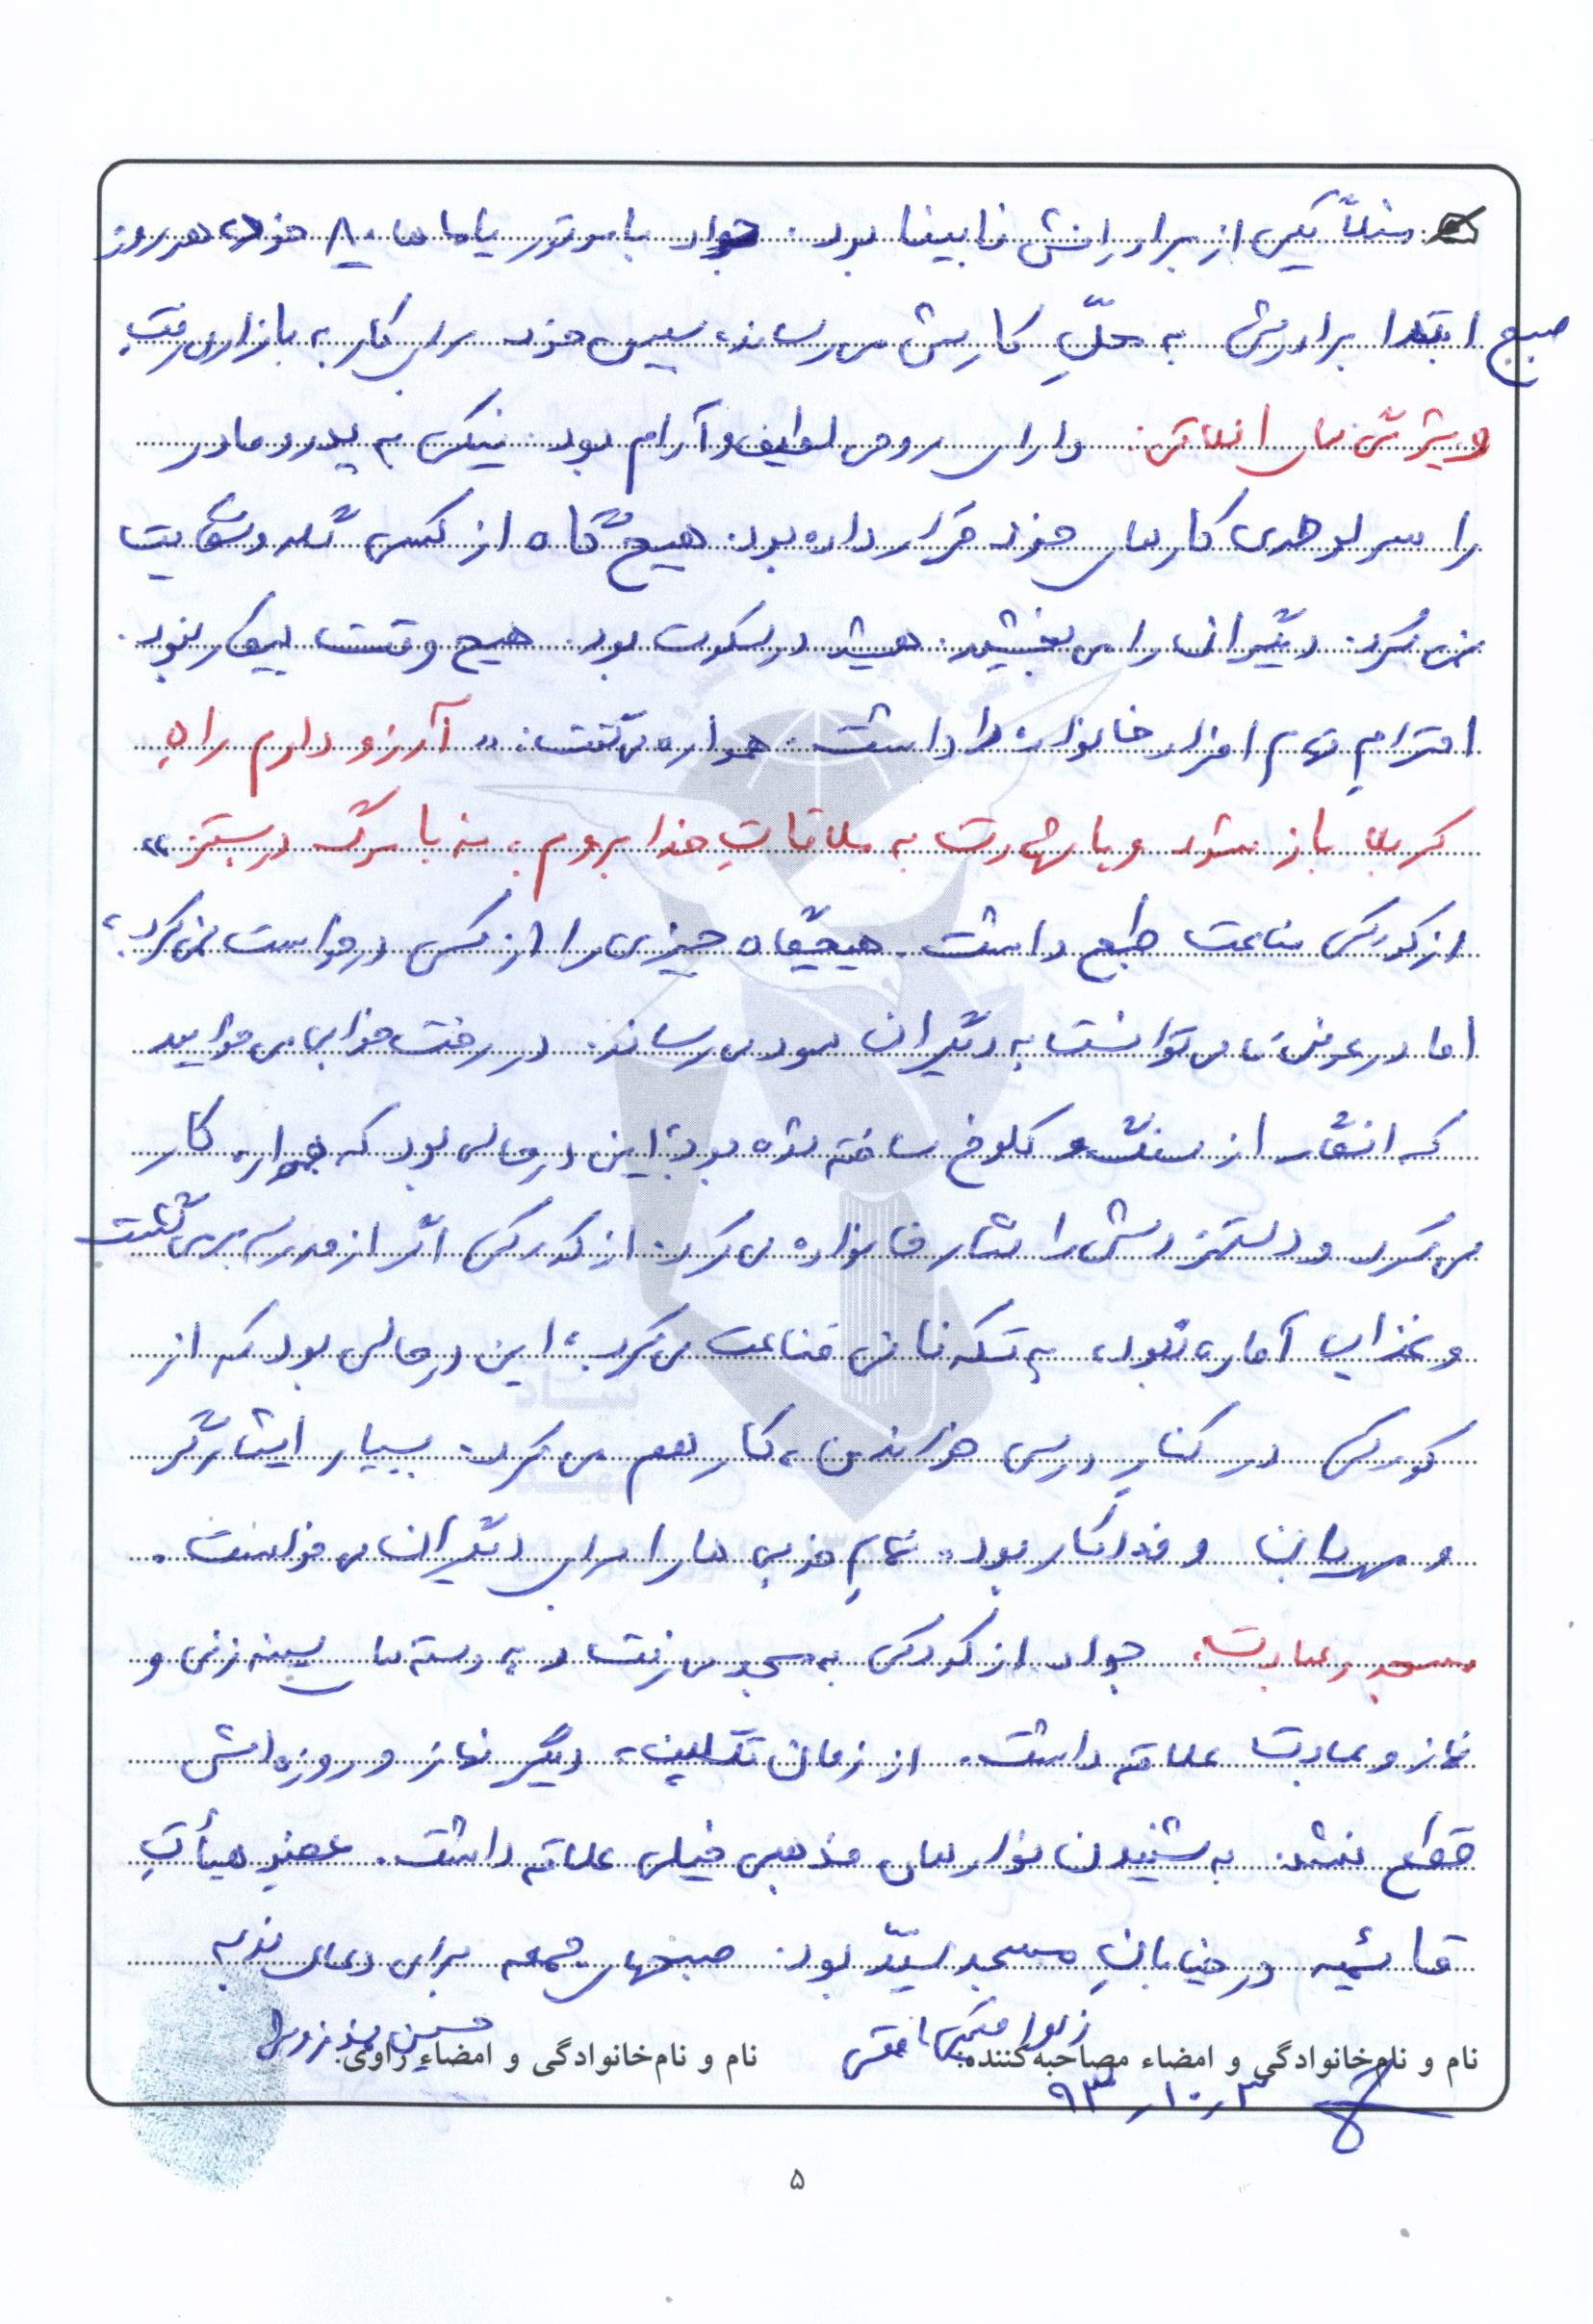 مثلاً یکی از برادرانش نابینا بود. جواد با موتور یاماها ۸۰ خود، هر روز
صبح ابتدا برادرش به محلّ کارش می رساند، سپس خود برای کار به بازار می رفت.
ویژگی های اخلاقی: دارای روحی لطیف و آرام بود. نیکی به پدر و مادر
را سر لوحه ی کارهای خود قرار داده بود. هیچ گاه از کسی گله و شکایت
نمی کرد. دیگران را می بخشید. همیشه در سکوت بود. هیچ وقت بیکار نبود.
احترام تمام افراد خانواده را داشت. همواره می گفت: «آرزو دارم راهِ
کربلا باز شود و با شهادت به ملاقاتِ خدا بروم؛ نه با مرگ در بستر»
از کودکی مناعت طبع داشت. هیچگاه چیزی را از کسی درخواست نمی کرد؛
اما در عوض تا می توانست به دیگران سود می رساند. در رختخوابی می خوابید
که انگار از سنگ و کلوخ ساخته شده بود؛ این در حالی بود که همواره کار
می کرد و دستمزدش را نثار خانواده می کرد. از کودکی اگر از مدرسه برمی گشت
و غذایی آماده نبود، به تکه نانی قناعت می کرد؛ این در حالی بود که از
کودکی در کنارِ درس خواندن، کار هم می کرد. بسیار ایثارگر
و مهربان و فداکار بود. تمامِ خوبی ها را برای دیگران می خواست.
مسجد و عبادت: جواد از کودکی به مسجد می رفت و به دسته های سینه زنی و
نماز و عبادت علاقه داشت. از زمان تکلیف، دیگر نماز و روزه اش
قطع نشد. به شنیدن نوارهای مذهبی خیلی علاقه داشت. عضوِ هیأتِ
قائمیه در خیابانِ مسجد سیّد بود. صبحهای جمعه برای دعای ندبه
نام و نام خانوادگی و امضاء مصاحبه کننده: زهرا
نام و نام خانوادگی و امضاء راوی: حسین
۹۳٫۱۰٫۳
۵